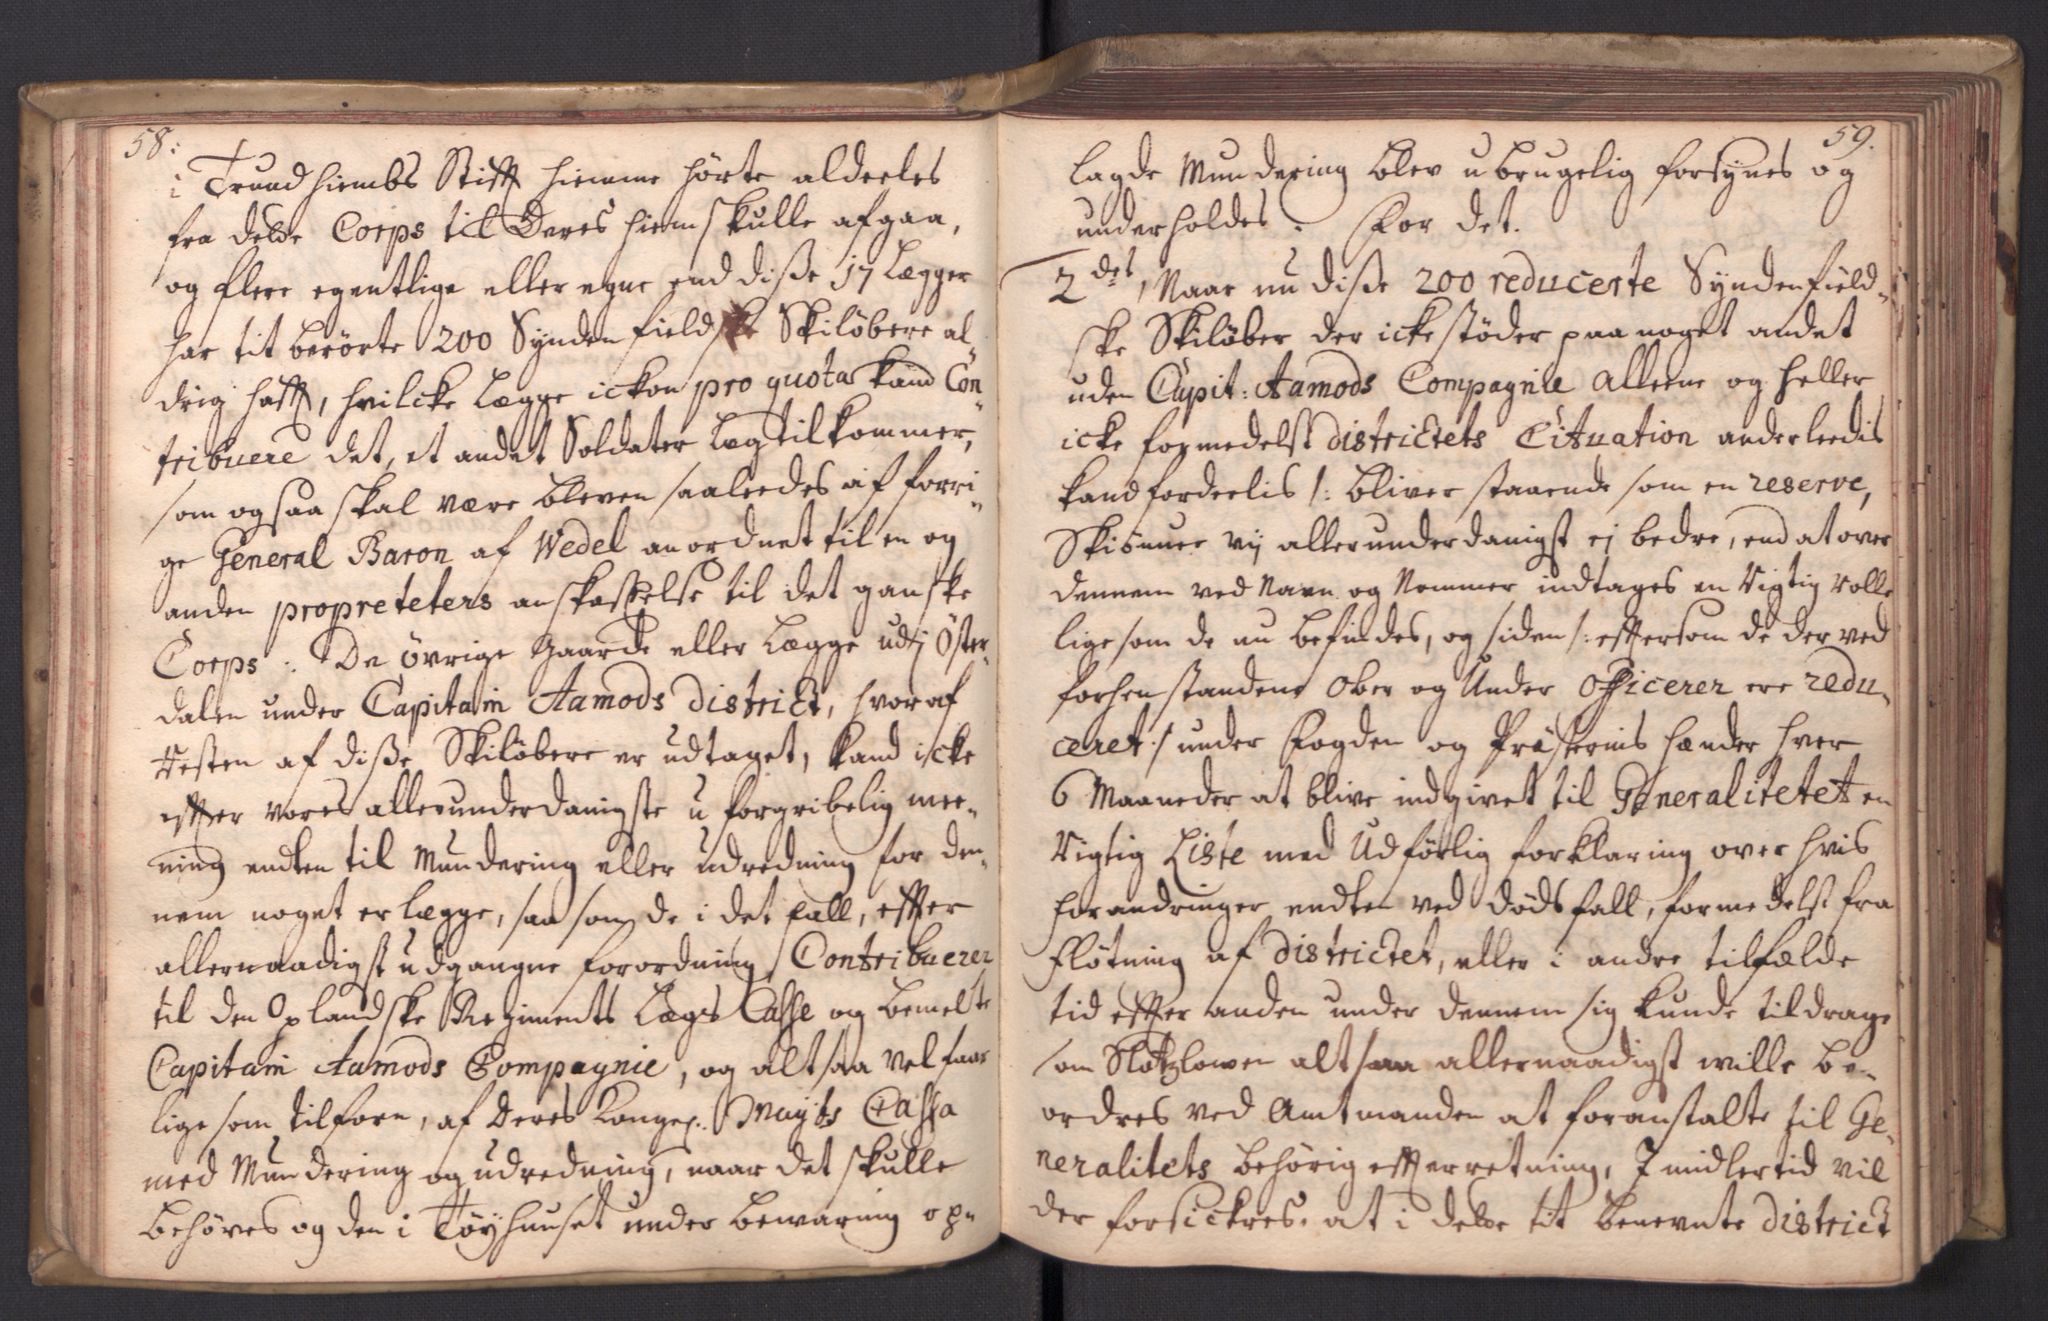 58:
i Trundhiembs Stifft hiemme hörte aldeeles
fra dette Corps til Deres hiem skulle afgaa,
og flere egentlige eller egne end diße 17 Lægger
har tit berörte 200 Syndenfieldske Skilöbere al-
drig hafft, hvilcke Lægge ickon pro quota kand Con-
tribuere det, et andet Soldater Læg tilkommer,
som ogsaa skal være bleven saaleedes af forri-
ge General Baron af Wedel anordnet til en og
anden propreteters anskaffelse til det ganske
Corps :. De övrige Gaarde eller Lægge udj Öster-
dalen under Capitain Aamods District, hvoraf
Resten af diße Skilöbere er udtaget, kand icke
effter vores allerunderdanigste uforgribelig mee-
ning endten til Mundering eller udredning for den-
nem noget erlægge, saasom de i det fall, effter
allernaadigst udgangne forordning, Contribuerer
til den Oplandske Regiments Lægs Casse og bemelte
Capitain Aamods Compagnie, og altsaa vel faar
ligesom tilforn, af Deres Kongel: Mayts Cassa
med Mundering og udredning, naar det skulle
behöves og den i Töyhuuset under bewaring op-
59.
lagde Mundering blev ubrugelig forsynes og
underholdes. For det.
2des, Naar nu diße 200 reducerte Syndenfield-
ske Skilöber der icke stöder paa noget andet
uden Capit: Aamods Compagnie alleene og heller
icke formedelst Districtets Cituation anderleedis
kand fordeelis /: bliver staaende som en reserve,
Skiönner vij allerunderdanigst ej bedre, end at over
dennem ved Navn og Nommer indtages en Rigtig Rolle
ligesom de nu befindes, og siden /: efftersom de der ved
forhen standene Ober og Under Officerer ere redu-
ceret :/ under Fogden og Præsternis hænder hver
6 Maaneder at blive indgivet til Generalitetet en
Rigtig Liste med Udförlig forklaring over hvis
forandringer endten ved Dödsfall, formedelst fra
flötning af Districtet, eller i andre tilfælde
tid effter anden under dennem sig kunde tildrage
som Slotzlowen altsaa allernaadigst wille be-
ordres ved Amtmanden at foranstalte til Ge-
neralitets behörig effterretning, Imidlertid vil
der forsickres, at i dette tit benevnte District